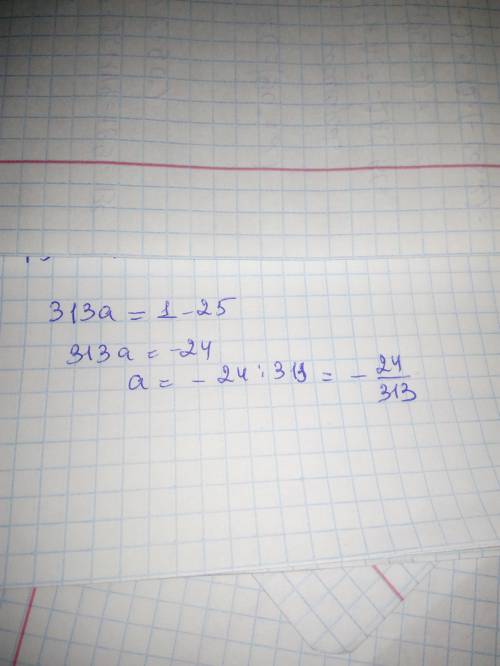 313a = 1 - 25
313a = -24
a = - 24 : 313 = - 24/313